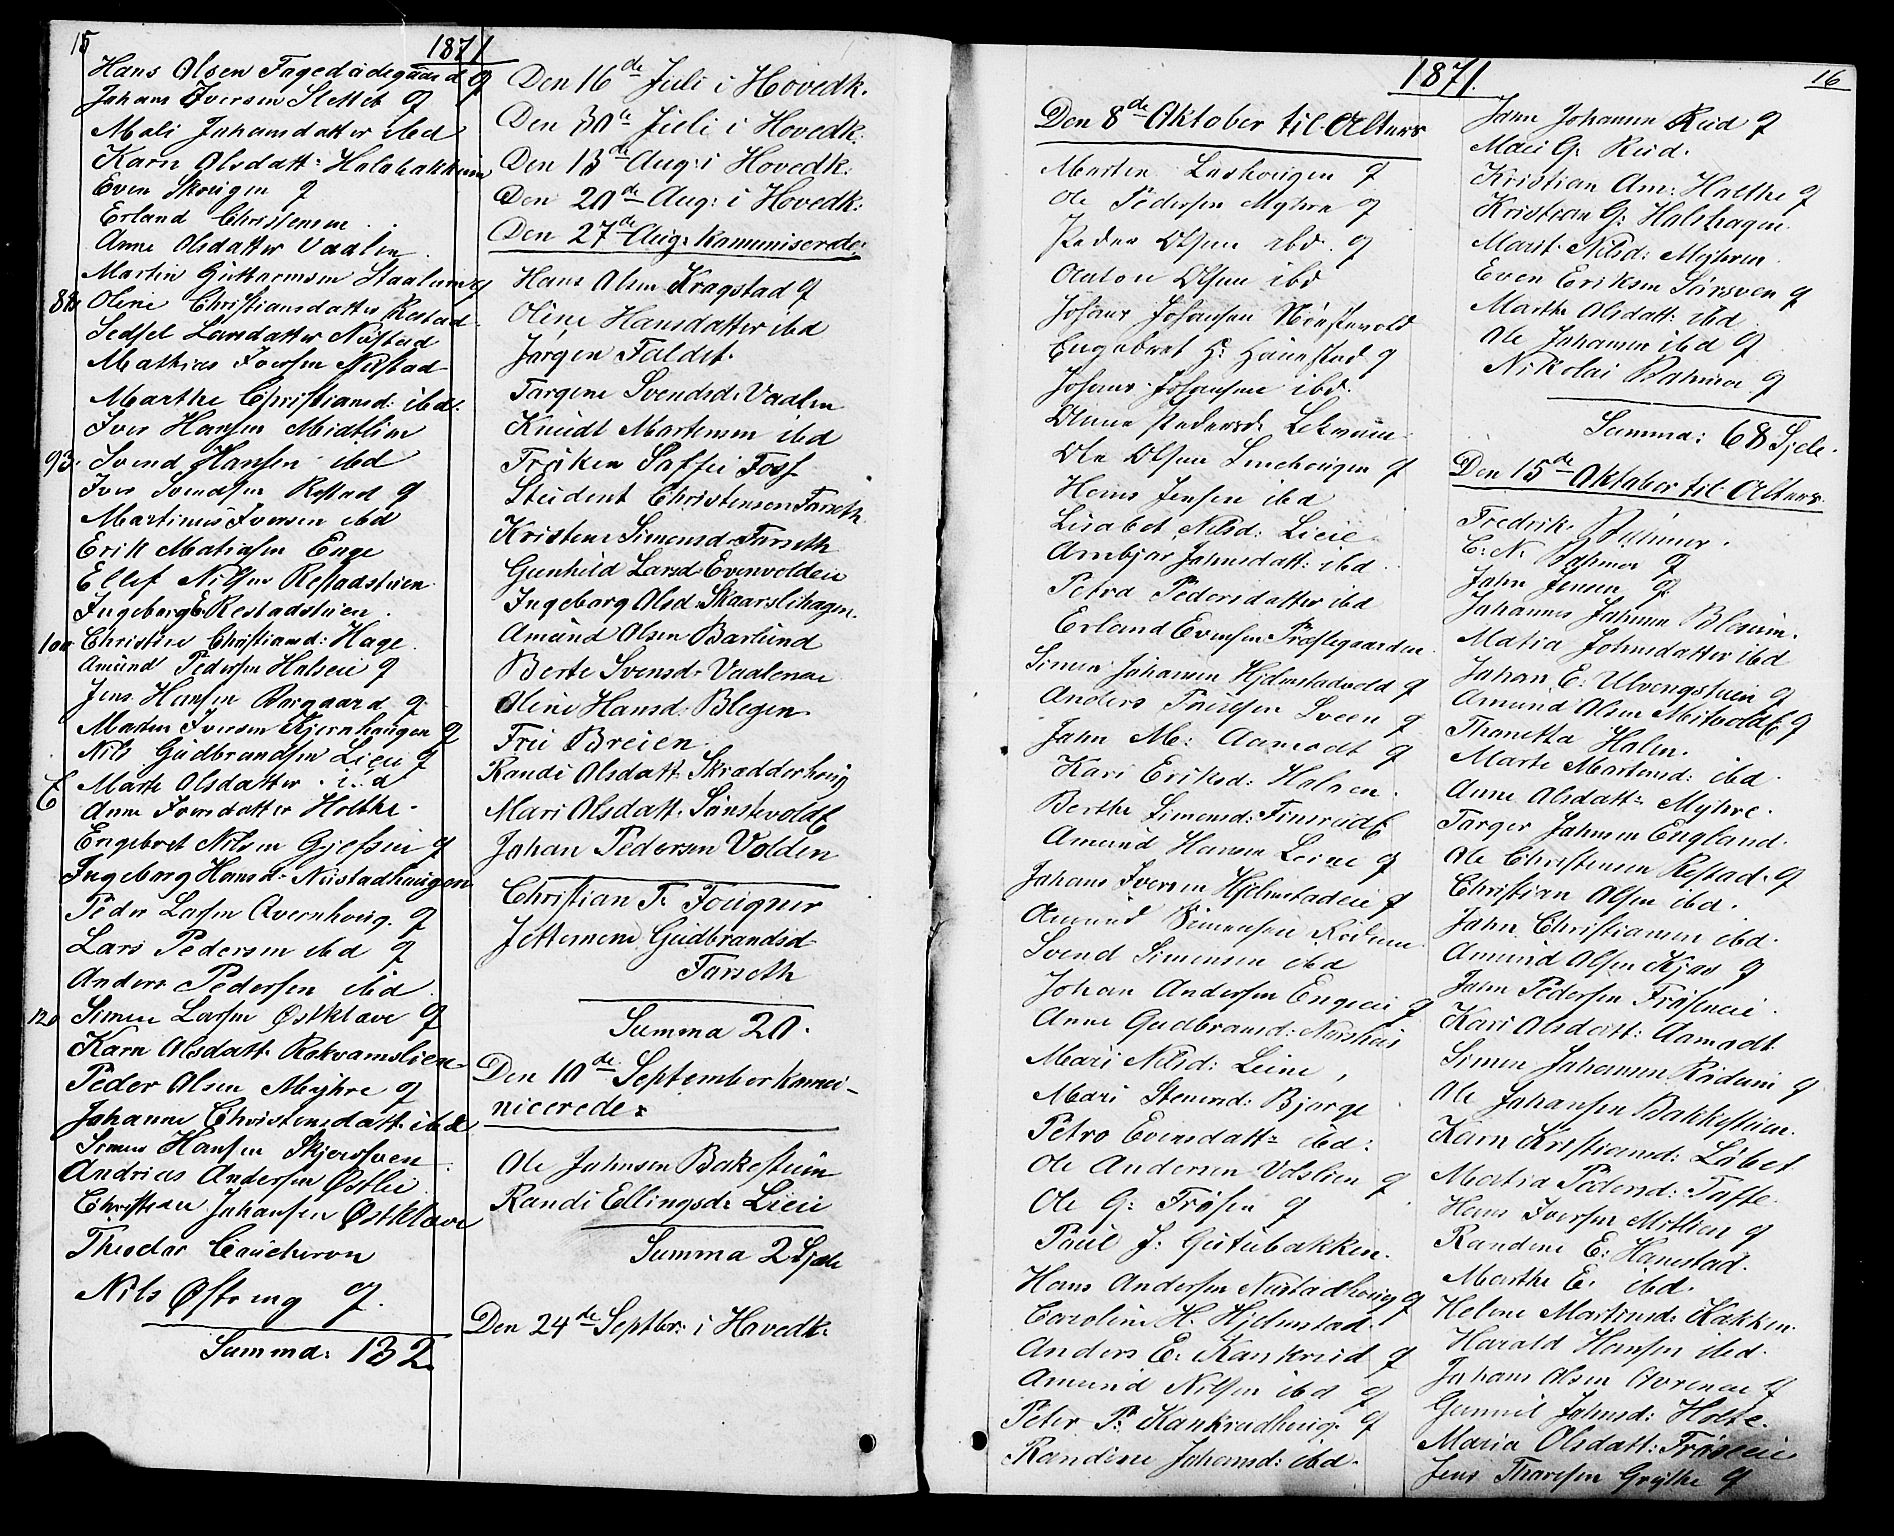 15
1871
Hans Olsen Fagedadegaard g
Johans Iversen Slettet g
Mali Johansdatter ibd
Karn Olsdatt: Halsbakken
Even Skougen g
Erland Christensen
Anne Olsdatter Vaalen
Martin Guttormsen Staalien g
88 Olene Christiansdatter Restad
Sedsel Larsdatter Nustad
Mathias Iversen Nustad
Marthe Christiansd: ibd:
Iver Hansen Midtlien
93 Svend Hansen ibd
Iver Svendsen Restad g
Martinus Iversen ibd
Erik Matiasen Enge
Ellef Nilsen Restadstuen
Ingeborg E Restadstuen
100 Christine Christiansd: Hage
Amund Pedersen Halseie g
Jens Hansen Borgaard g
Morten Iversen Kjernhaugen g
Nils Gudbrandsen Lien g
Marte Olsdatter ibd
Anne Iversdatter Holthe
Engebret Nilsen Gjefsen g
Ingeborg Hansd: Nustadhaugen
Peder Larsen Qvernhoug g
Lars Pedersen ibd g
Anders Pedersen ibd
120 Simen Larsen Østklave g
Karn Olsdatt: Rokvamslien
Peder Olsen Myhre g
Johanne Christensdatt: ibd
Simen Hansen Skjersveen
Andrias Andersen Østlie
Christian Johansen Østklave
Theodor Caucheron
Nils Østeng g.
Summa: 132
Den 16de Juli i Hovedk.
Den 30te Juli i Hovedk:
Den 13de Aug: i Hovedk.
Den 20de Aug: i Hovedk:
Den 27de Aug: Komuniserede:
Hans Olsen Kragstad g
Oline Hansdatter ibd
Jørgen Faldet.
Torgine Svendsd: Vaalen
Knudt Martensen ibd
Frøken Saffi Fos
Student Christensen Farseth
Kristene Simensd: Farseth
Gunhild Larsd: Evenvolden
Ingeborg Olsd: Skaarslihagen.
Amund Olsen Barlund
Berte Svensd: Vaalene
Oline Hansd: Blegen
Fru Breien
Randi Olsdatt: Skradderhoug
Mari Olsdatt: Sønstevold E
Johan Pedersen Volden
Christian Fr. Fougner
Jettemene Gudbrandsd
Farseth
Summa 20.
Den 10de September Komu-
nicerede:
Ole Johnsen Bakestuen
Randi Ellingsd: Lieie
Summa 2 Sjæle
Den 24de Septbr: i Hovedk:
1871.
16
Den 8de Oktober til Alters
Morten Lushougen g
Ole Pedersen Myhre g
Peder Olsen ibd g
Anton Olsen ibd
Johans Johansen Nørstevold
Engebret H: Hanestad g
Johans Johansen ibd.
Anne Pedersd: Lekvam
Ole Olsen Linehougen g
Hans Jensen ibd
Lisabet Nilsd: Lieie
Ambjør Johnsdatt: ibd
Petra Pedersdatter ibd
Erland Evensen Præstegaarden
Simen Johansen Hjelmstadvold g
Anders Paulsen Sveen g
John M: Aamodt g
Kari Eriksd: Halsen.
Berthe Simensd: Finsrud E
Amund Hansen Leine g
Johans Iversen Hjelmstadeie g
Amund Simensen Rodum
Svend Simensen ibd
Johan Andersen Engeeie g
Anne Gudbransd: Norshus
Mari Nilsd: Leine
Mari Stensd: Bjørge
Petro Evensdatt: ibd:
Ole Andersen Volslien g
Ole G: Frøsen g
Paul J: Gutubakken.
Hans Andersen Nustadhoug g
Caroline H. Hjelmstad.
Anders E: Kankrud g
Amund Nilsen ibd g
Peter P: Kankrudhoug. g
Randine Johansd: ibd.
John Johansen Rud g
Mari G: Rud.
Kristian Am: Halthe g
Kristian G: Halshagen.
Marit Nilsd: Myhren
Even Eriksen Sørsven g
Marthe Olsdatt: ibd
Ole Johansen ibd g
Nikolai Bahmer g
Summa: 68 Sjele.
Den 15de Oktober til Alters.
Fredrik Bahmer.
C: N: Bahmer g
John Jensen g.
Johannes Johnsen Blosum.
Matia Johnsdatter ibd
Johan E: Ulvengstuen g
Amund Olsen Mitvold E g
Thonetta Halen.
Marte Martensd: ibd.
Anne Olsdatt: Myhre.
Torger Johnsen England.
Ole Christensen Restad. g
Christian Olsen ibd.
John Christiansen ibd.
Amund Olsen Kjos g
John Pedersen Frøseneie.
Kari Olsdatt: Aamodt
Simen Johansen Rodum g
Ole Johansen Bakkestuen.
Karn Kristiansd: Løbet
Martia Pedersd: Tofte.
Hans Iversen Mitlien g
Randine E: Hanestad.
Marthe E. ibd.
Helene Martensd: Kakken.
Harald Hansen ibd.
Johans Olsen Avrenen g
Gunnil Johnsd: Holte.
Maria Olsdatt: Frøseeie
Jens Thoresen Grythe g